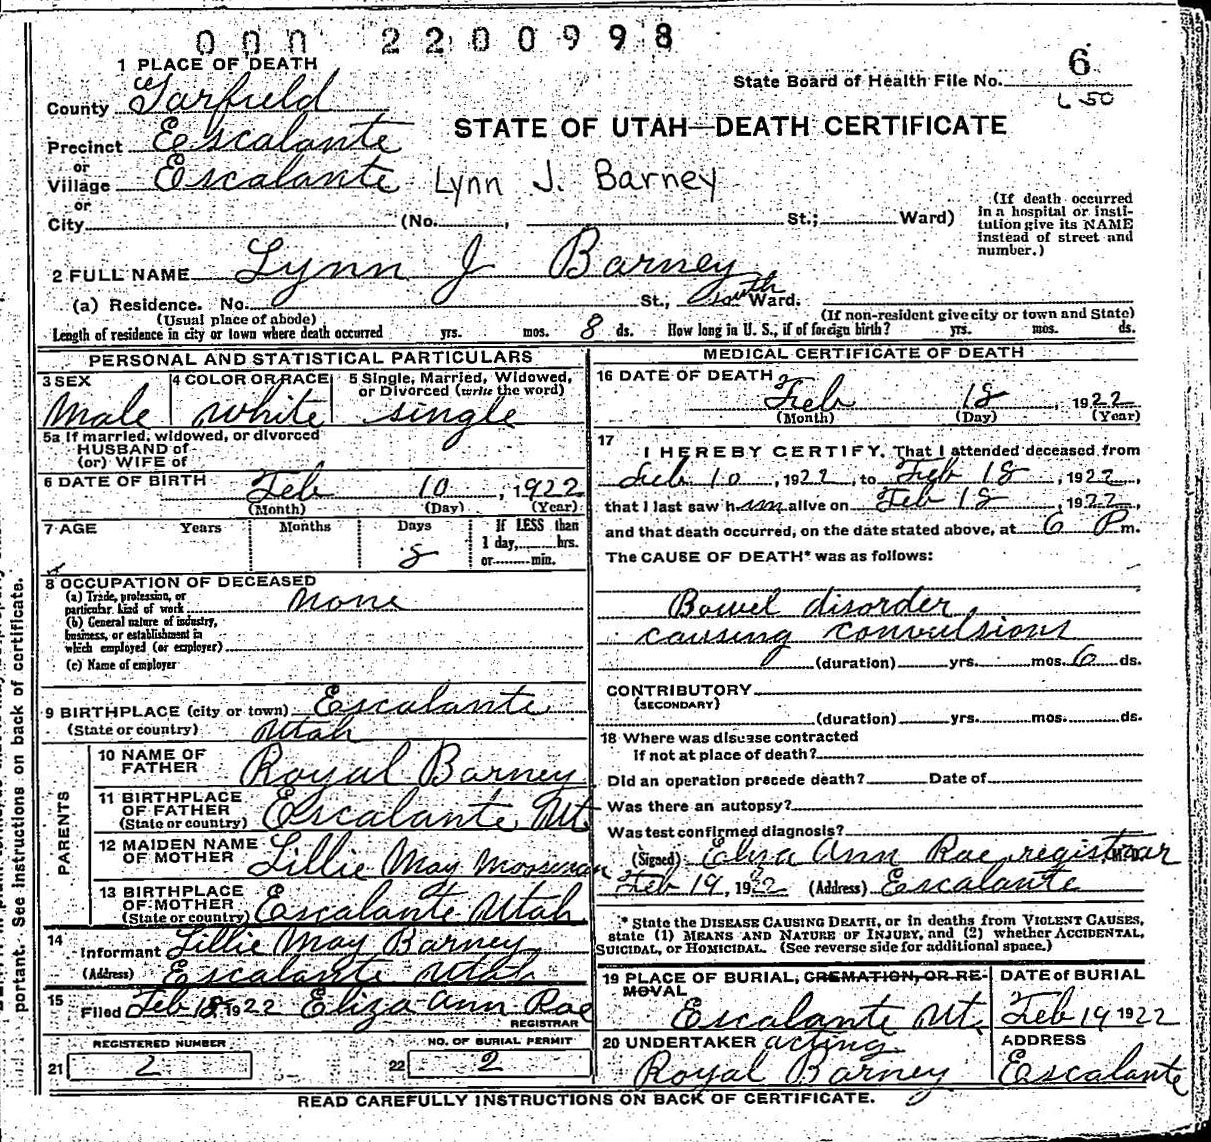 000 2200998
1 PLACE OF DEATH
State Board of Health File No. 6
County Garfield
L 50
STATE OF UTAH—DEATH CERTIFICATE
Precinct Eescalante
or
Village Escalante Lynn J. Barney
or
City (No. , St.; Ward)
(If death occurred
in a hospital or insti-
tution give its NAME
instead of street and
number.)
2 FULL NAME Lynn J Barney
(a) Residence. No. St., South Ward.
(Usual place of abode) (If non-resident give city or town and State)
Length of residence in city or town where death occurred yrs. mos. 8 ds. How long in U. S., if of foreign birth? yrs. mos. ds.
PERSONAL AND STATISTICAL PARTICULARS
3 SEX 4 COLOR OR RACE 5 Single, Married, Widowed,
or Divorced (write the word)
Male white single
5a If married, widowed, or divorced
HUSBAND of
(or) WIFE of
6 DATE OF BIRTH Feb 10, 1922
(Month) (Day) (Year)
7 AGE Years Months Days If LESS than
8 1 day, hrs.
or min.
8 OCCUPATION OF DECEASED
(a) Trade, profession, or
particular kind of work none
(b) General nature of industry,
business, or establishment in
which employed (or employer)
(c) Name of employer
9 BIRTHPLACE (city or town) Escalante
(State or country) Utah
PARENTS
10 NAME OF
FATHER Royal Barney
11 BIRTHPLACE
OF FATHER
(State or country) Escalante Ut.
12 MAIDEN NAME
OF MOTHER Lillie May Moosman
13 BIRTHPLACE
OF MOTHER
(State or country) Escalante Utah
14
Informant Lillie May Barney
(Address) Escalante Utah
15
Filed Feb 18 1922 Eliza Ann Rae
REGISTRAR
REGISTERED NUMBER NO. OF BURIAL PERMIT
21 2 22 2
MEDICAL CERTIFICATE OF DEATH
16 DATE OF DEATH
Feb 18, 1922
(Month) (Day) (Year)
17
I HEREBY CERTIFY, That I attended deceased from
Feb 10, 1922, to Feb 18, 1922,
that I last saw him alive on Feb 18, 1922,
and that death occurred, on the date stated above, at 6 P m.
The CAUSE OF DEATH* was as follows:
Bowel disorder,
causing convulsions
(duration) yrs. mos. 6 ds.
CONTRIBUTORY
(SECONDARY)
(duration) yrs. mos. ds.
18 Where was disease contracted
If not at place of death?
Did an operation precede death? Date of
Was there an autopsy?
Was test confirmed diagnosis?
(Signed) Eliza Ann Rae, registrar
Feb 19, 1922 (Address) Escalante
* State the DISEASE CAUSING DEATH, or in deaths from VIOLENT CAUSES,
state (1) MEANS AND NATURE OF INJURY, and (2) whether ACCIDENTAL,
SUICIDAL, OR HOMICIDAL. (See reverse side for additional space.)
19 PLACE OF BURIAL, CREMATION, OR RE-
MOVAL
Escalante Ut.
DATE of BURIAL
Feb 19 1922
20 UNDERTAKER acting
Royal Barney
ADDRESS
Escalante
READ CAREFULLY INSTRUCTIONS ON BACK OF CERTIFICATE.
portant. See instructions on back of certificate.